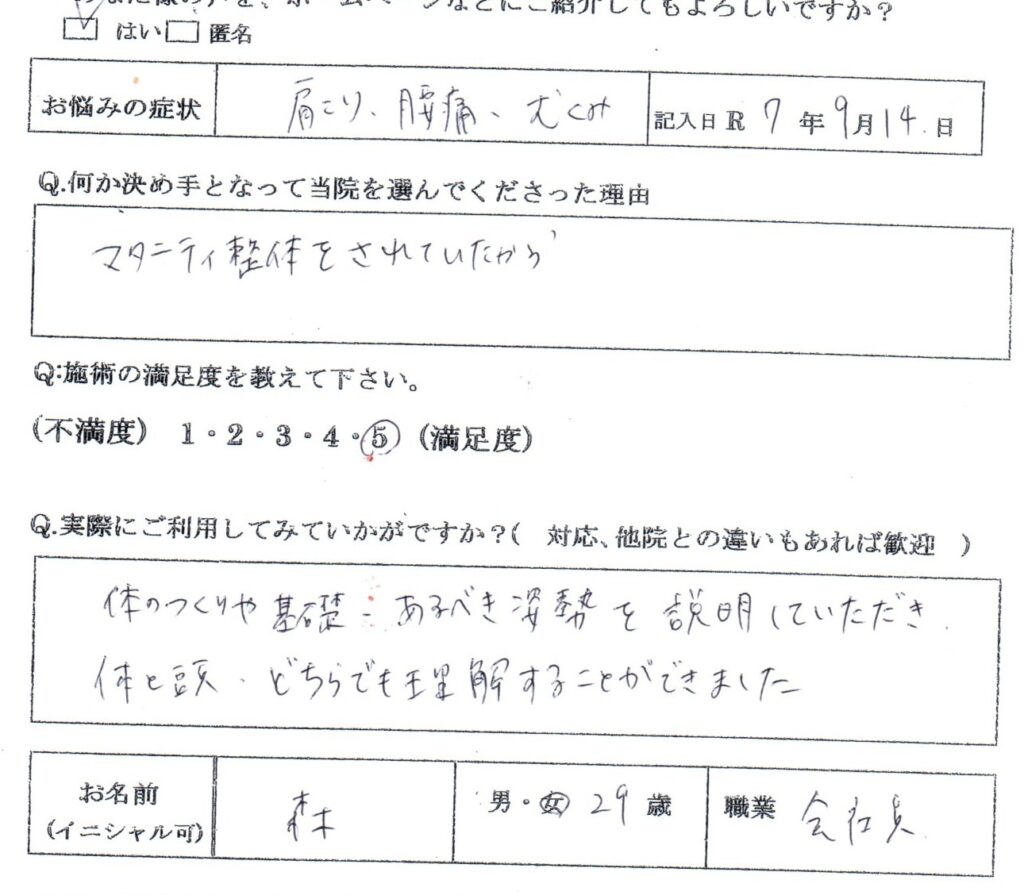 あなた様の声を、ホームページなどにご紹介してもよろしいですか？
はい 匿名
お悩みの症状 肩こり、腰痛、むくみ 記入日 R 7 年 9 月 14 日
Q.何か決め手となって当院を選んでくださった理由
マタニティ整体をされていたから
Q:施術の満足度を教えて下さい。
(不満度) 1・2・3・4・5 (満足度)
Q.実際にご利用してみていかがですか？( 対応、他院との違いもあれば歓迎 )
体のつくりや基礎 = あるべき姿勢を説明していただき、
体と頭、どちらでも理解することができました
お名前 森 男・女 29 歳 職業 会社員
(イニシャル可)